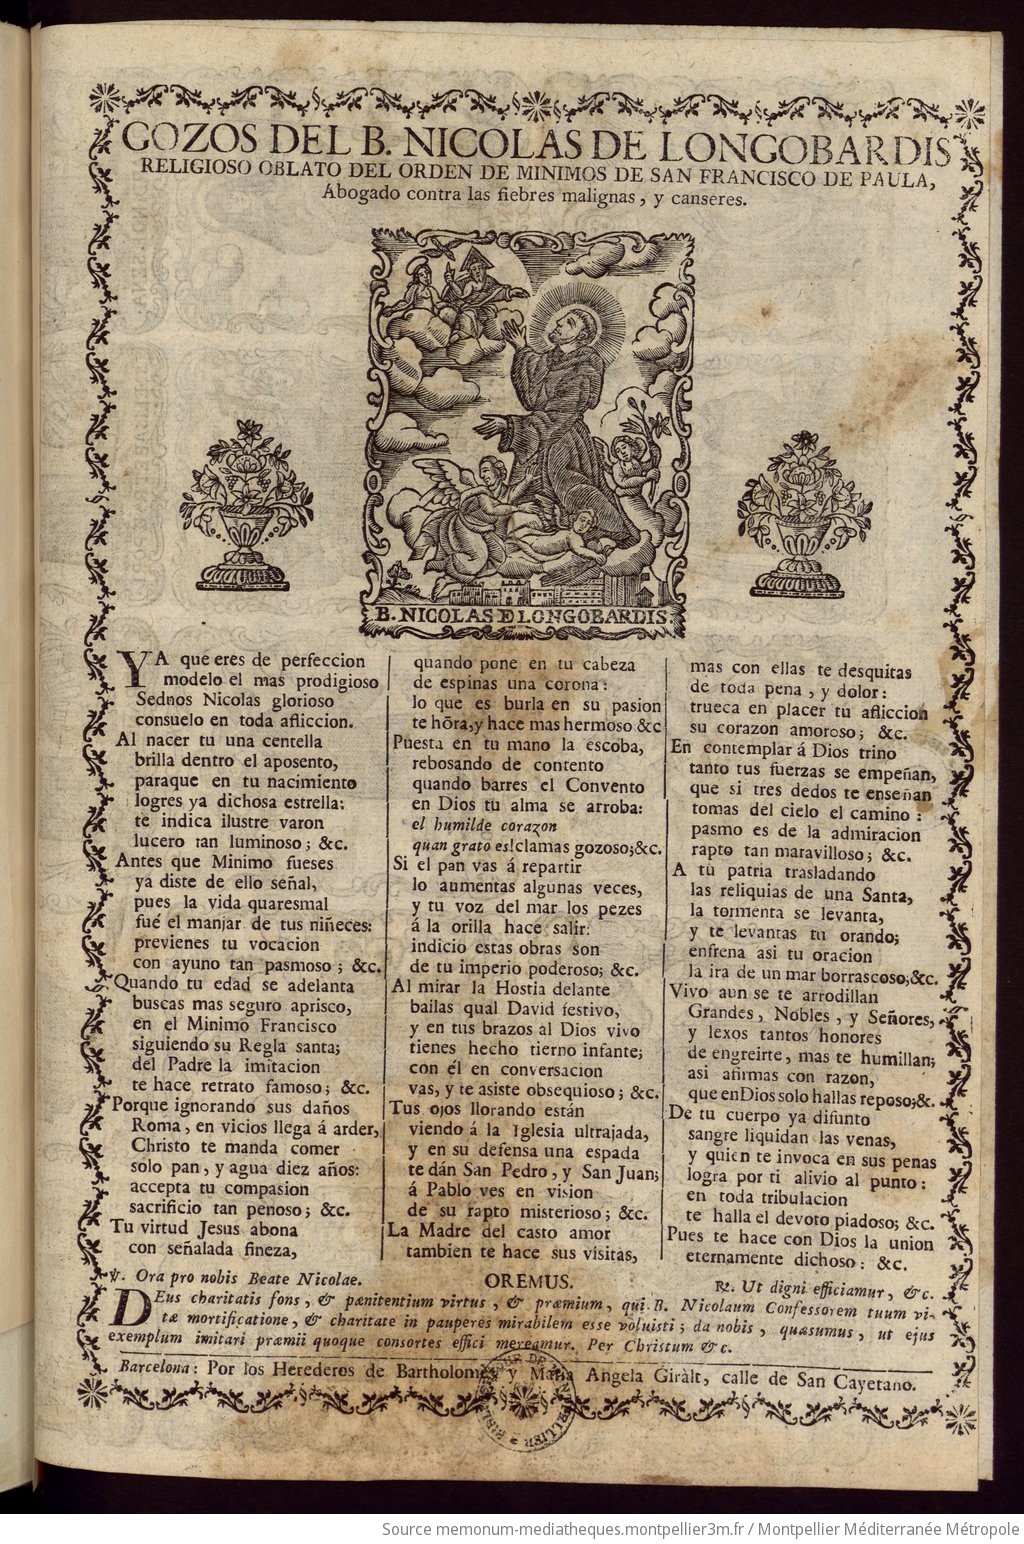 GOZOS DEL B. NICOLAS DE LONGOBARDIS
RELIGIOSO OBLATO DEL ORDEN DE MINIMOS DE SAN FRANCISCO DE PAULA,
Abogado contra las fiebres malignas, y canseres.
B. NICOLAS D LONGOBARDIS.
YA que eres de perfeccion
modelo el mas prodigioso
Sednos Nicolas glorioso
consuelo en toda afliccion.
Al nacer tu una centella
brilla dentro el aposento,
paraque en tu nacimiento
logres ya dichosa estrella:
te indica ilustre varon
lucero tan luminoso; &c.
Antes que Minimo fueses
ya diste de ello señal,
pues la vida quaresmal
fué el manjar de tus niñeces:
previenes tu vocacion
con ayuno tan pasmoso; &c.
Quando tu edad se adelanta
buscas mas seguro aprisco,
en el Minimo Francisco
siguiendo su Regla santa;
del Padre la imitacion
te hace retrato famoso; &c.
Porque ignorando sus daños
Roma, en vicios llega á arder,
Christo te manda comer
solo pan, y agua diez años:
accepta tu compasion
sacrificio tan penoso; &c.
Tu virtud Jesus abona
con señalada fineza,
quando pone en tu cabeza
de espinas una corona:
lo que es burla en su pasion
te hõra, y hace mas hermoso &c
Puesta en tu mano la escoba,
rebosando de contento
quando barres el Convento
en Dios tu alma se arroba:
el humilde corazon
quan grato es! clamas gozoso; &c.
Si el pan vas á repartir
lo aumentas algunas veces,
y tu voz del mar los pezes
á la orilla hace salir:
indicio estas obras son
de tu imperio poderoso; &c.
Al mirar la Hostia delante
bailas qual David festivo,
y en tus brazos al Dios vivo
tienes hecho tierno infante;
con él en conversacion
vas, y te asiste obsequioso; &c.
Tus ojos llorando están
viendo á la Iglesia ultrajada,
y en su defensa una espada
te dán San Pedro, y San Juan;
á Pablo ves en vision
de su rapto misterioso; &c.
La Madre del casto amor
tambien te hace sus visitas,
mas con ellas te desquitas
de toda pena, y dolor:
trueca en placer tu afliccion
su corazon amoroso; &c.
En contemplar á Dios trino
tanto tus fuerzas se empeñan,
que si tres dedos te enseñan
tomas del cielo el camino:
pasmo es de la admiracion
rapto tan maravilloso; &c.
A tu patria trasladando
las reliquias de una Santa,
la tormenta se levanta,
y te levantas tu orando;
enfrena asi tu oracion
la ira de un mar borrascoso; &c.
Vivo aun se te arrodillan
Grandes, Nobles, y Señores,
y lexos tantos honores
de engreirte, mas te humillan;
asi afirmas con razon,
que en Dios solo hallas reposo; &c.
De tu cuerpo ya difunto
sangre liquidan las venas,
y quien te invoca en sus penas
logra por ti alivio al punto:
en toda tribulacion
te halla el devoto piadoso; &c.
Pues te hace con Dios la union
eternamente dichoso: &c.
℣. Ora pro nobis Beate Nicolae. OREMUS. ℞. Ut digni efficiamur, &c.
DEus charitatis fons, & pænitentium virtus, & præmium, qui B. Nicolaum Confessorem tuum vi-
tæ mortificatione, & charitate in pauperes mirabilem esse voluisti; da nobis, quæsumus, ut ejus
exemplum imitari præmii quoque consortes effici mereamur. Per Christum &c.
Barcelona: Por los Herederos de Bartholomé y Maria Angela Giràlt, calle de San Cayetano.
Source memonum-mediatheques.montpellier3m.fr / Montpellier Méditerranée Métropole